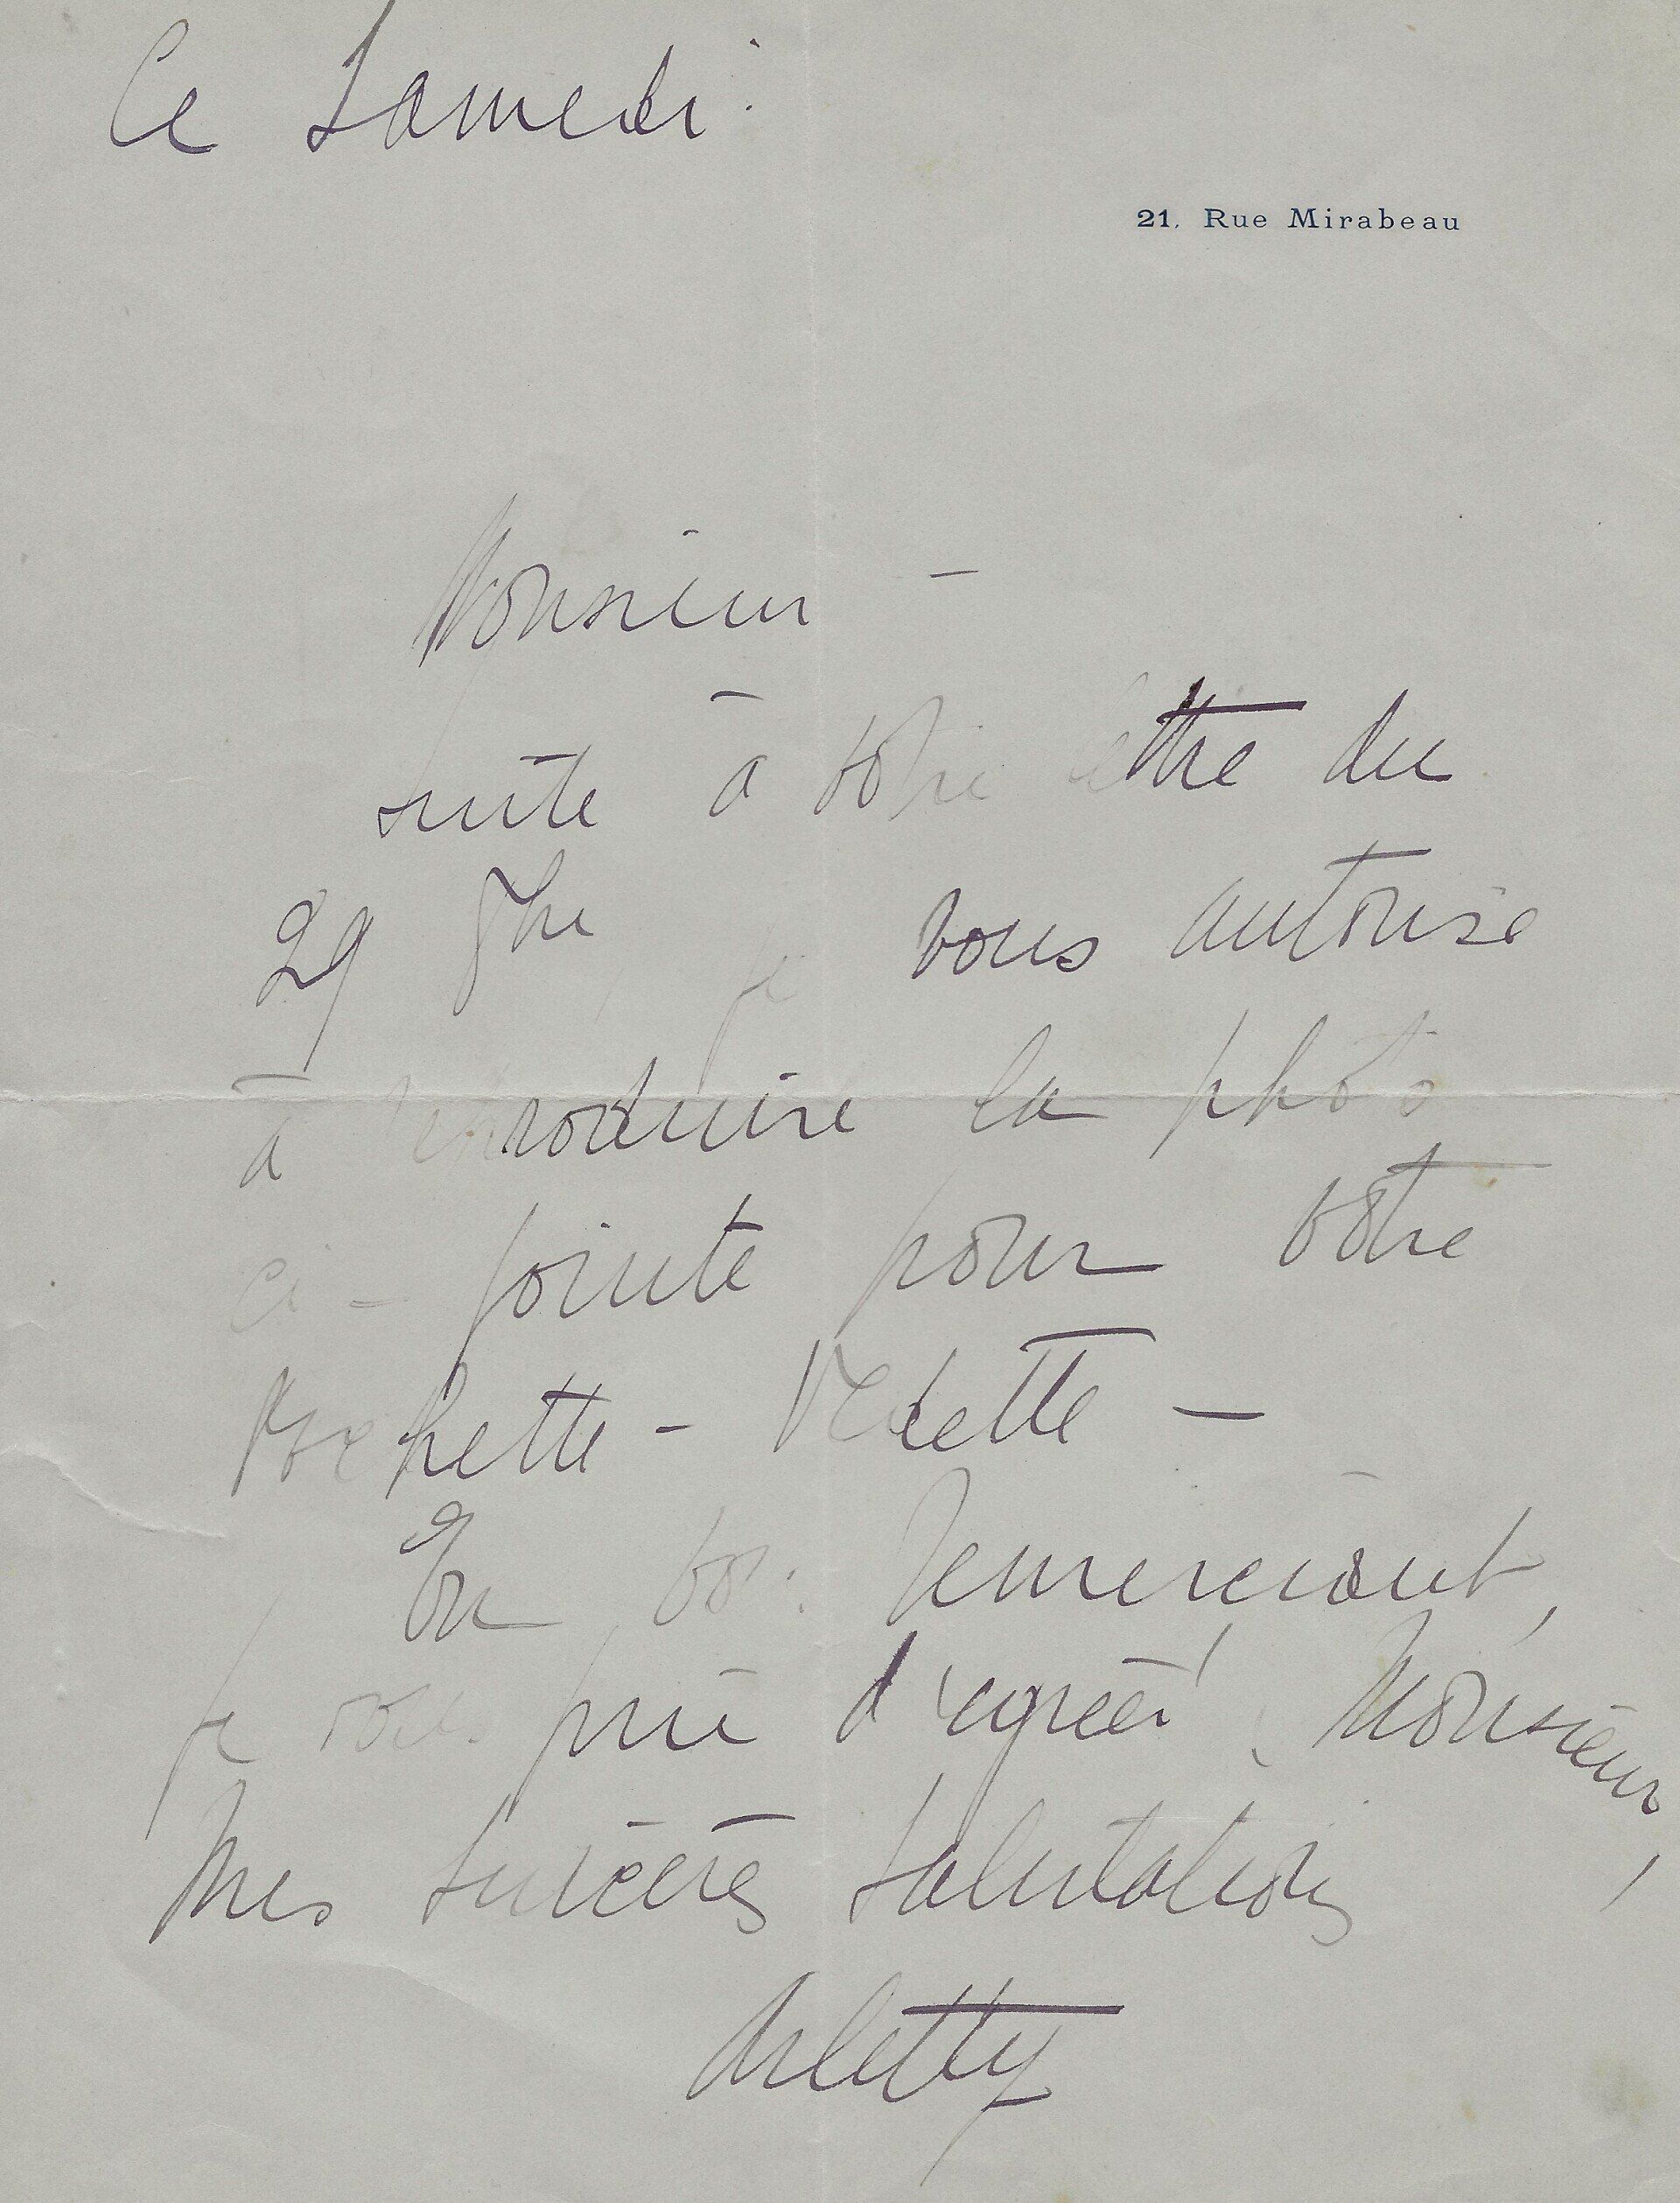 Ce Samedi.
21, Rue Mirabeau
Monsieur –
suite à votre lettre du
29 , je vous autorise
à reproduire la photo
ci-jointe pour votre
Pochette – Vedette –
En vous remerciant,
je vous prie d'agréer, Monsieur,
mes sincères salutations
Arletty